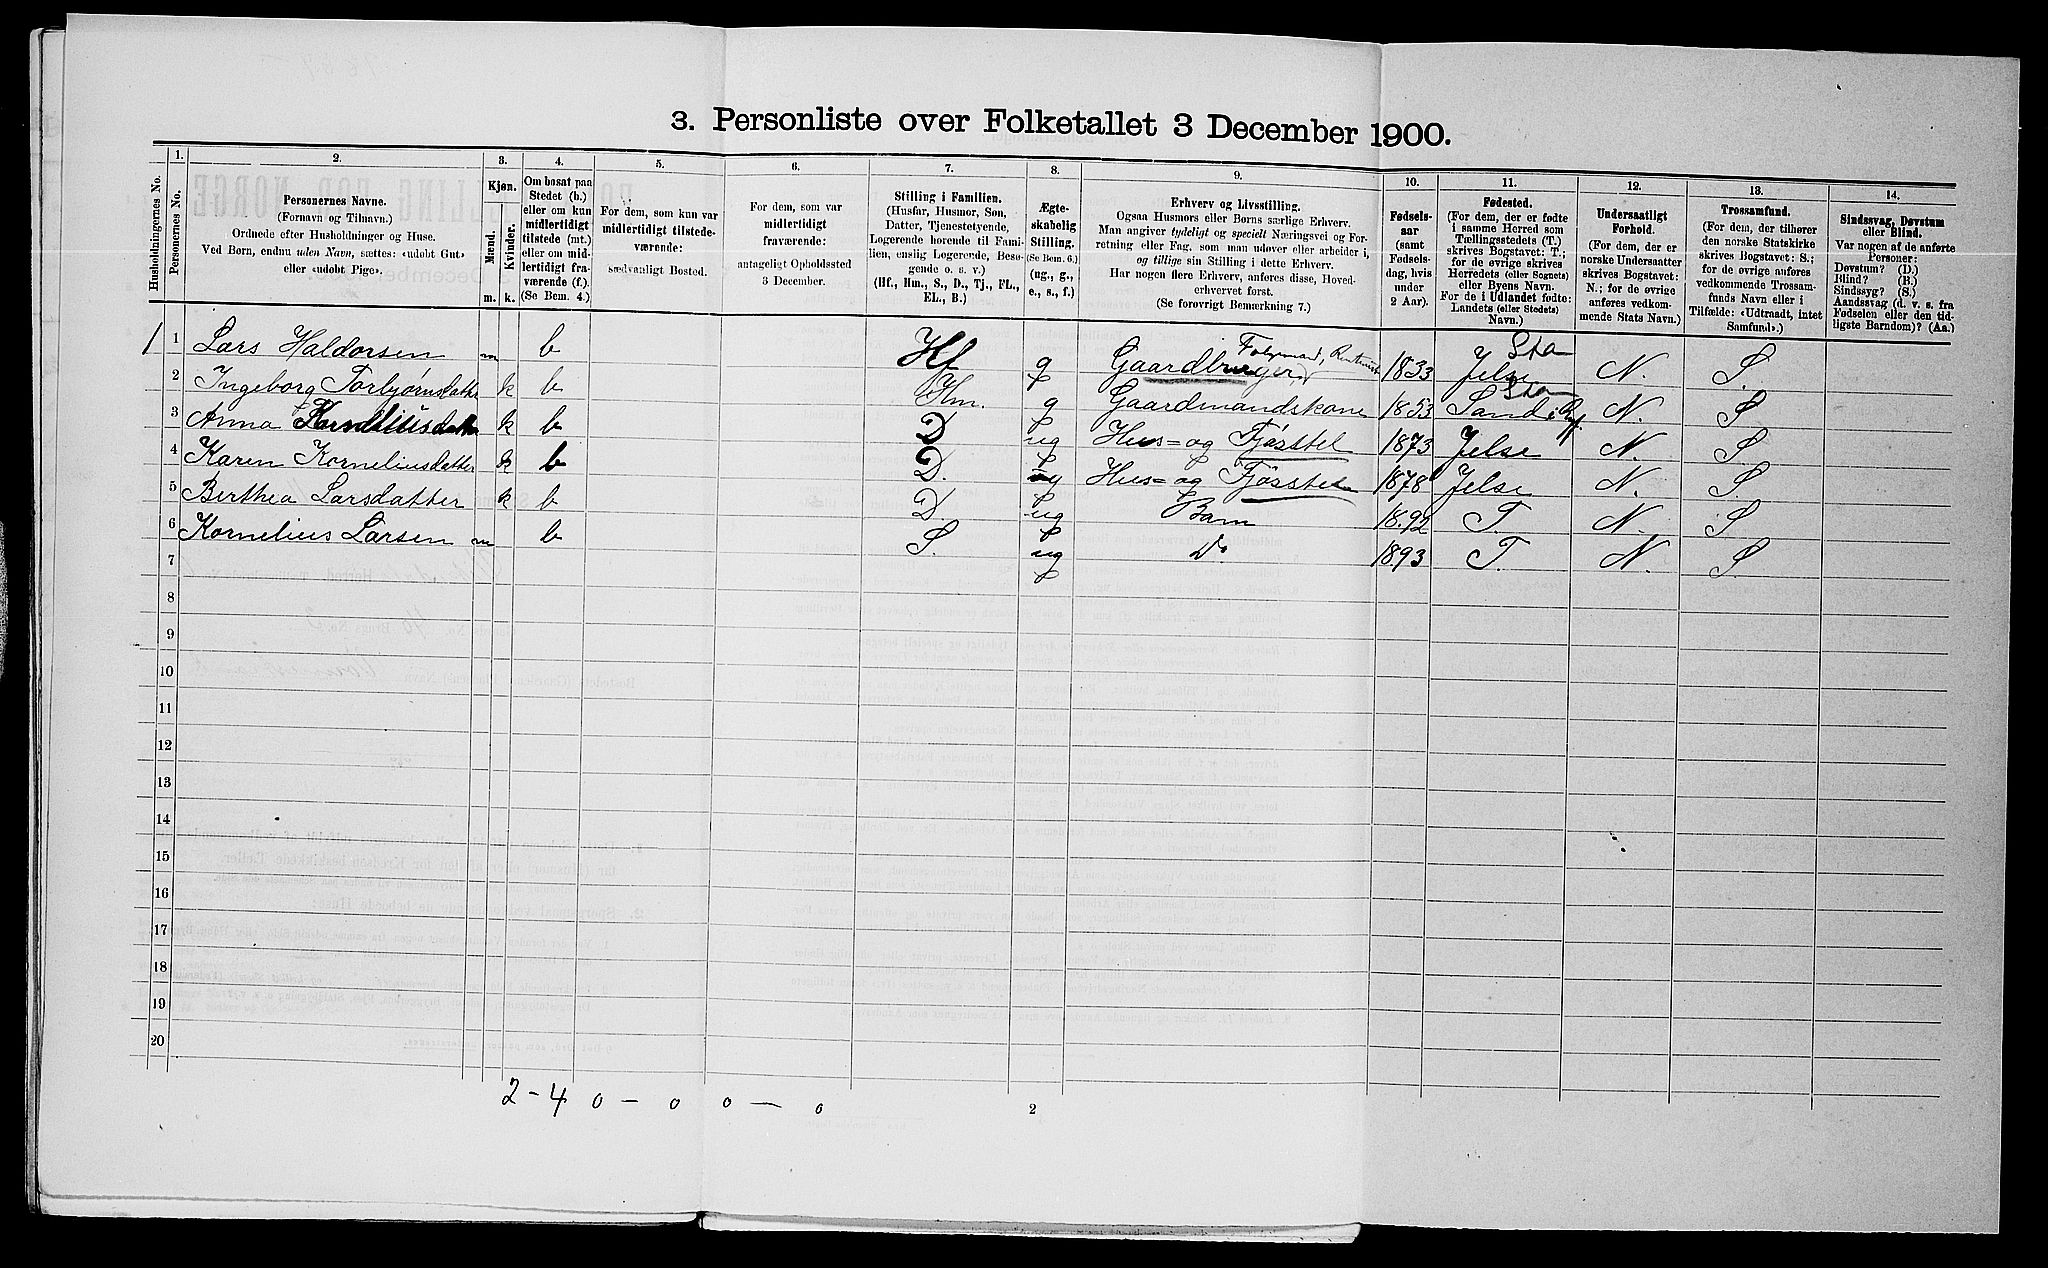 3. Personliste over Folketallet 3 December 1900.
Husholdningernes No.
1.
Personernes No.
2.
Personernes Navne.
(Fornavn og Tilnavn.)
Ordnede efter Husholdninger og Huse.
Ved Børn, endnu uden Navn, sættes: «udobt Gut»
eller «udobt Pige».
3.
Kjøn.
Mænd.
Kvinder.
m. k.
4.
Om bosat paa
Stedet (b.)
eller om kun
midlertidigt
tilstede (mt.)
eller om mid-
lertidigt fra-
værende (f.).
(Se Bem. 4.)
5.
For dem, som kun var
midlertidigt tilstede-
værende:
sædvanligt Bosted.
6.
For dem, som var
midlertidigt
fraværende:
antageligt Opholdssted
3 December.
7.
Stilling i Familien.
(Husfar, Husmor, Søn,
Datter, Tjenestetyende,
Logerende hørende til Fami-
lien, enslig Logerende, Besø-
gende o. s. v.)
(Hf., Hm., S., D., Tj., FL.,
EL., B.)
8.
Ægte-
skabelig
Stilling.
(Se Bem. 6.)
(ug., g.,
e., s., f.)
9.
Erhverv og Livsstilling.
Ogsaa Husmors eller Børns særlige Erhverv.
Man angiver tydeligt og specielt Næringsvei og For-
retning eller Fag, som man udøver eller arbeider i,
og tillige sin Stilling i dette Erhverv.
Har nogen flere Erhverv, anføres disse, Hoved-
erhvervet først.
(Se forøvrigt Bemærkning 7.)
10.
Fødsels-
aar
(samt
Fødsels-
dag, hvis
under
2 Aar).
11.
Fødested.
(For dem, der er fødte
i samme Herred som
Tællingsstedets (T.)
skrives Bogstavet: T.;
for de øvrige skrives
Herredets (eller Sognets)
eller Byens Navn.
For de i Udlandet fødte:
Landets (eller Stedets)
Navn.)
12.
Undersaatligt
Forhold.
(For dem, der er
norske Undersaatter
skrives Bogstavet:
N.; for de øvrige
anføres vedkom-
mende Stats Navn.)
13.
Trossamfund.
(For dem, der tilhører
den norske Statskirke
skrives Bogstavet: S.;
for de øvrige anføres
vedkommende Trossam-
funds Navn eller i
Tilfælde: «Udtraadt, intet
Samfund».)
14.
Sindssvag, Døvstum
eller Blind.
Var nogen af de anførte
Personer:
Døvstum? (D.)
Blind? (B.)
Sindssyg? (S.)
Aandssvag (d. v. s. fra
Fødselen eller den tid-
ligste Barndom)? (Aa.)
1 1 Lars Haldorsen m b Hf g Gaardbruger, 1833 Jelse Sta N. S.
2 Ingeborg Torbjørnsdatter k b Hm. g Gaardmandskone 1853 Sand i Ryf. Sta N. S
3 Anna Korneliusdatter k b D ug Hus= og Fjøsstel 1873 Jelse N. S
4 Karen Korneliusdatter k b D. ug Hus= og Fjøsstel 1878 Jelse N. S.
5 Berthea Larsdatter k b D ug Barn 1892 T. N. S
6 Kornelius Larsen m b S. ug Do 1893 T. N. S.
7
8
9
10
11
12
13
14
15
16
17
18
19
20
2 - 4 0 - 0 0 - 0
2